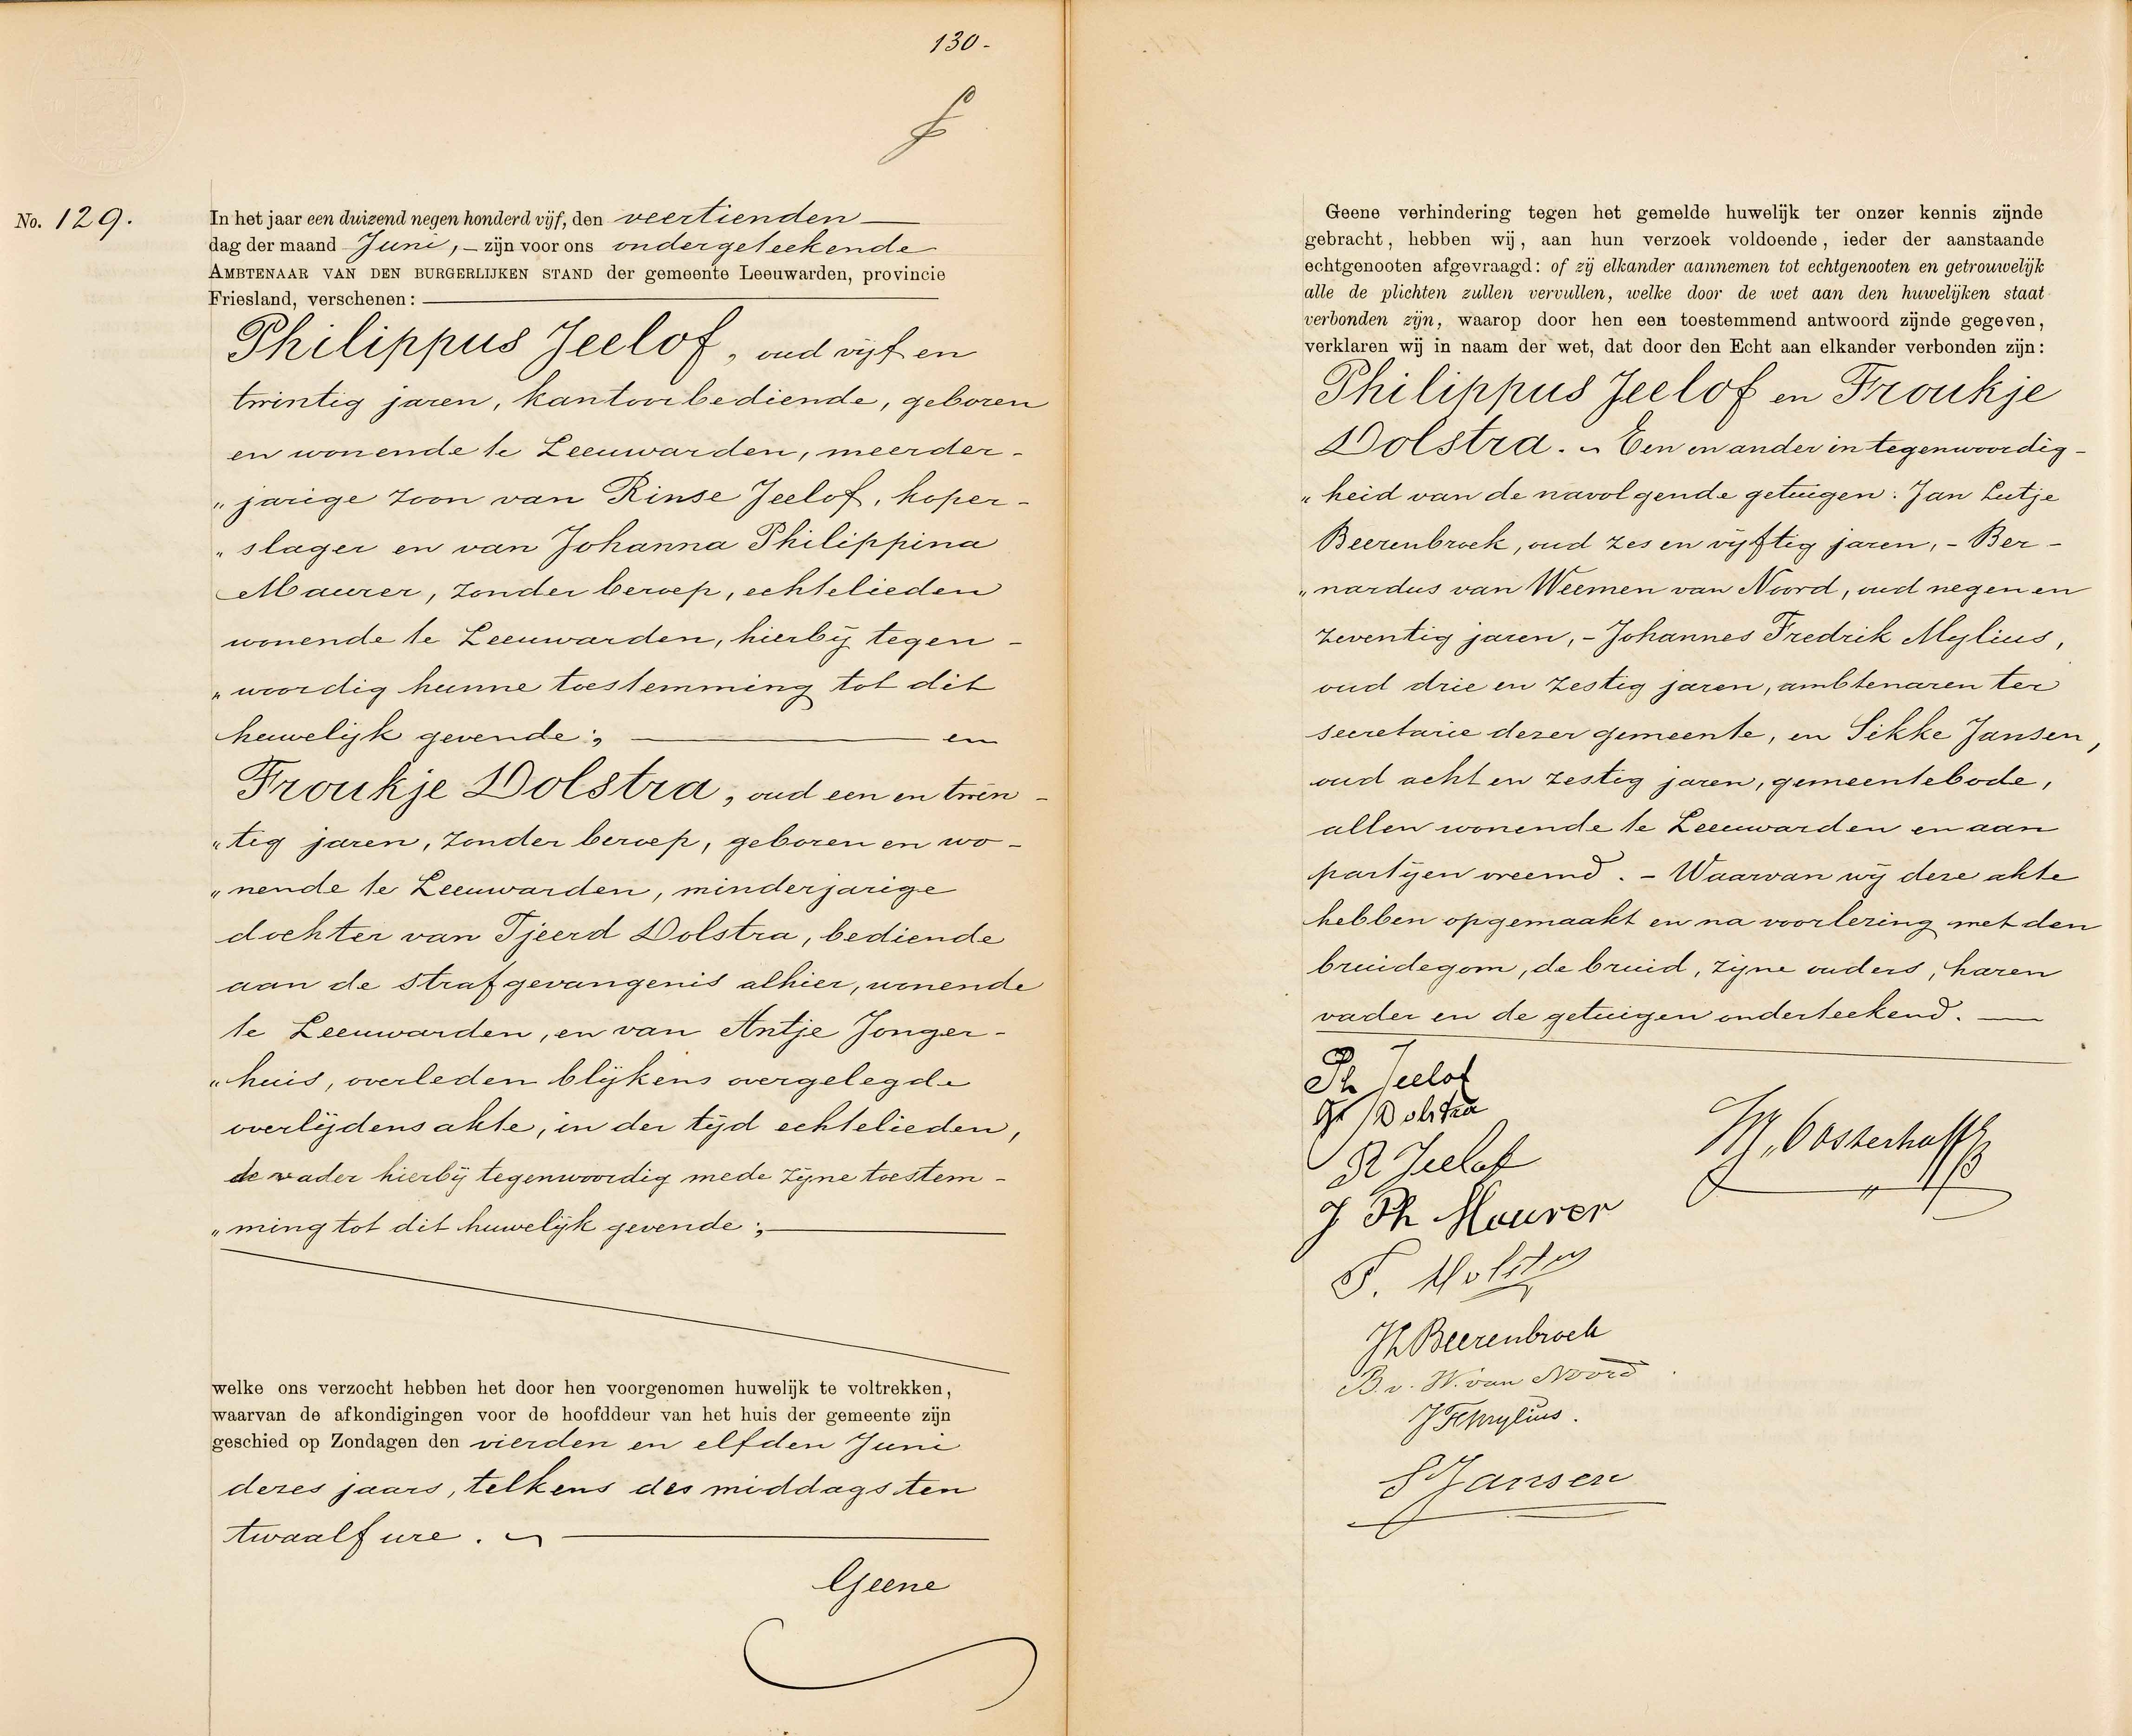 130-
No. 129.
In het jaar een duizend negen honderd vijf, den veertienden
dag der maand Juni, - zijn voor ons ondergeteekende
AMBTENAAR VAN DEN BURGERLIJKEN STAND der gemeente Leeuwarden, provincie
Friesland, verschenen:
Philippus Jeelof, oud vijf en
twintig jaren, kantoorbediende, geboren
en wonende te Leeuwarden, meerder-
„jarige zoon van Rinse Jeelof, koper-
„slager en van Johanna Philippina
Maurer, zonder beroep, echtelieden
wonende te Leeuwarden, hierbij tegen-
„woordig hunne toestemming tot dit
huwelijk gevende; en
Froukje Dolstra, oud een en twin-
„tig jaren, zonder beroep, geboren en wo-
„nende te Leeuwarden, minderjarige
dochter van Tjeerd Dolstra, bediende
aan de strafgevangenis alhier, wonende
te Leeuwarden, en van Antje Jonger-
„huis, overleden blijkens overgelegde
overlijdensakte, in der tijd echtelieden,
de vader hierbij tegenwoordig mede zijne toestem-
„ming tot dit huwelijk gevende;
welke ons verzocht hebben het door hen voorgenomen huwelijk te voltrekken,
waarvan de afkondigingen voor de hoofddeur van het huis der gemeente zijn
geschied op Zondagen den vierden en elfden Juni
dezes jaars, telkens des middags ten
twaalf ure.
Geene
Geene verhindering tegen het gemelde huwelijk ter onzer kennis zijnde
gebracht, hebben wij, aan hun verzoek voldoende, ieder der aanstaande
echtgenooten afgevraagd: of zij elkander aannemen tot echtgenooten en getrouwelijk
alle de plichten zullen vervullen, welke door de wet aan den huwelijken staat
verbonden zijn, waarop door hen een toestemmend antwoord zijnde gegeven,
verklaren wij in naam der wet, dat door den Echt aan elkander verbonden zijn:
Philippus Jeelof en Froukje
Dolstra. - Een en ander in tegenwoordig-
„heid van de navolgende getuigen: Jan Lutje
Beerenbroek, oud zes en vijftig jaren, - Ber-
„nardus van Weemen van Noord, oud negen en
zeventig jaren, - Johannes Fredrik Mylius,
oud drie en zestig jaren, ambtenaren ter
secretarie dezer gemeente, en Sikke Jansen,
oud acht en zestig jaren, gemeentebode,
allen wonende te Leeuwarden en aan
partijen vreemd. - Waarvan wij deze akte
hebben opgemaakt en na voorlezing met den
bruidegom, de bruid, zijne ouders, haren
vader en de getuigen onderteekend.
Ph Jeelof
Fr Dolstra
R Jeelof
J Ph Maurer
T. Dolstra
Oosterhoff
JL Beerenbroek
B. v. W. van Noord
JF Mylius.
S Jansen